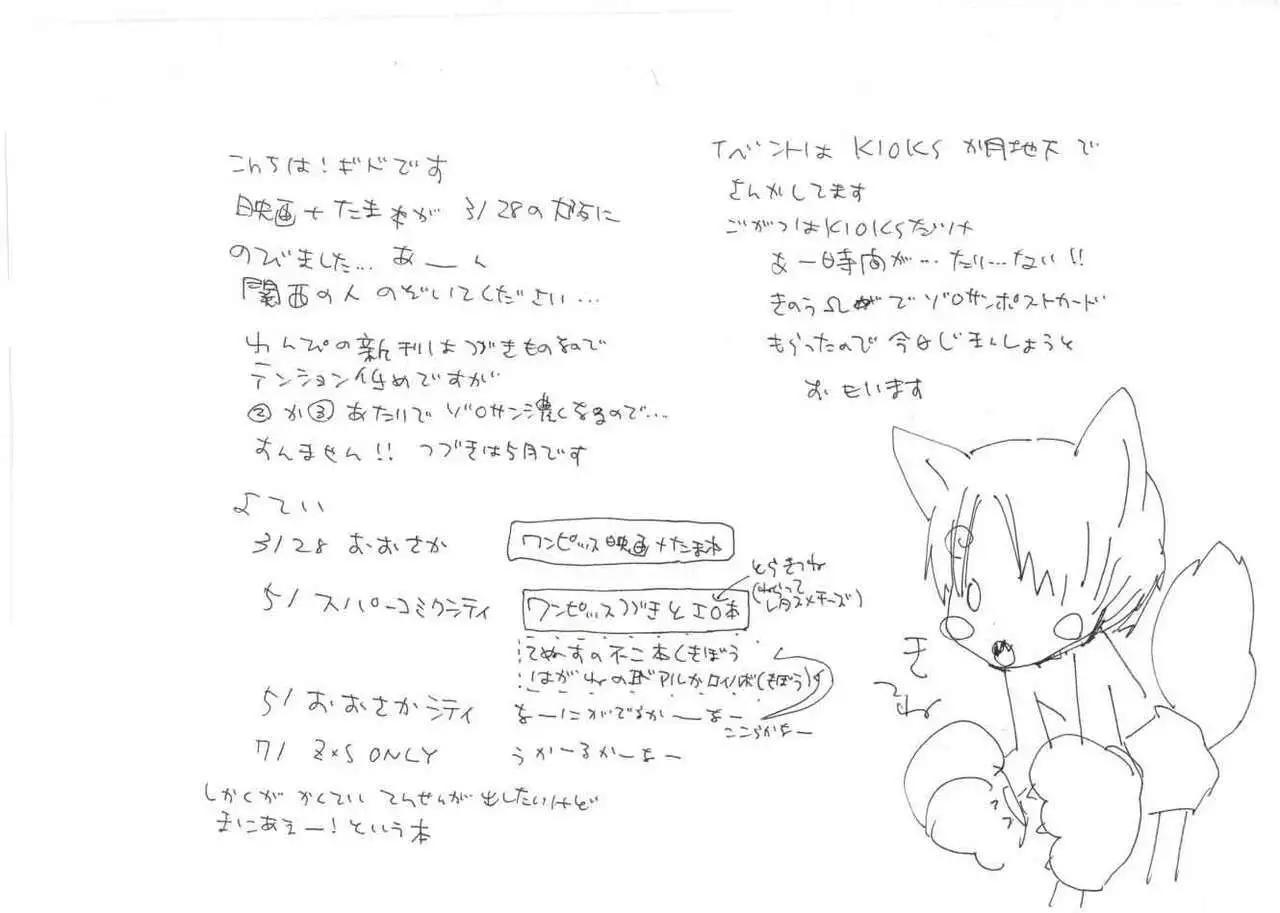 こんちは！ギドです
映画+たまねが 3/28の大阪に
のびました… あーん
関西の人 のぞいてください…
わんぴの新刊はつづきものなので
テンション低めですが
②か③あたりでゾロサン濃くなるので…
すんません!! つづきは5月です
よてい
3/28 おおさか ワンピッス映画+たまね
5/ スパーコミクシティ ワンピッスつづきとエロ本
とらきつね
(ねらって
レタスメチーズ)
てぬすの不二本(きぼう
はがねの
アルかロイ本(きぼう)
5/ おおさかシティ なーにがでるかーなー
ここらかなー
7/ Z×S ONLY うかーるかーなー
しかくが かくてい てんせんが出したいけど
まにあえー！という本
イベントは KIOKS か月地下で
さんかしてます
ごがつはKIOKSだけ
あー時間が…たり…ない!!
きのう
でゾロサンポストカード
もらったので 今日じまんしようと
おもいます
きつね